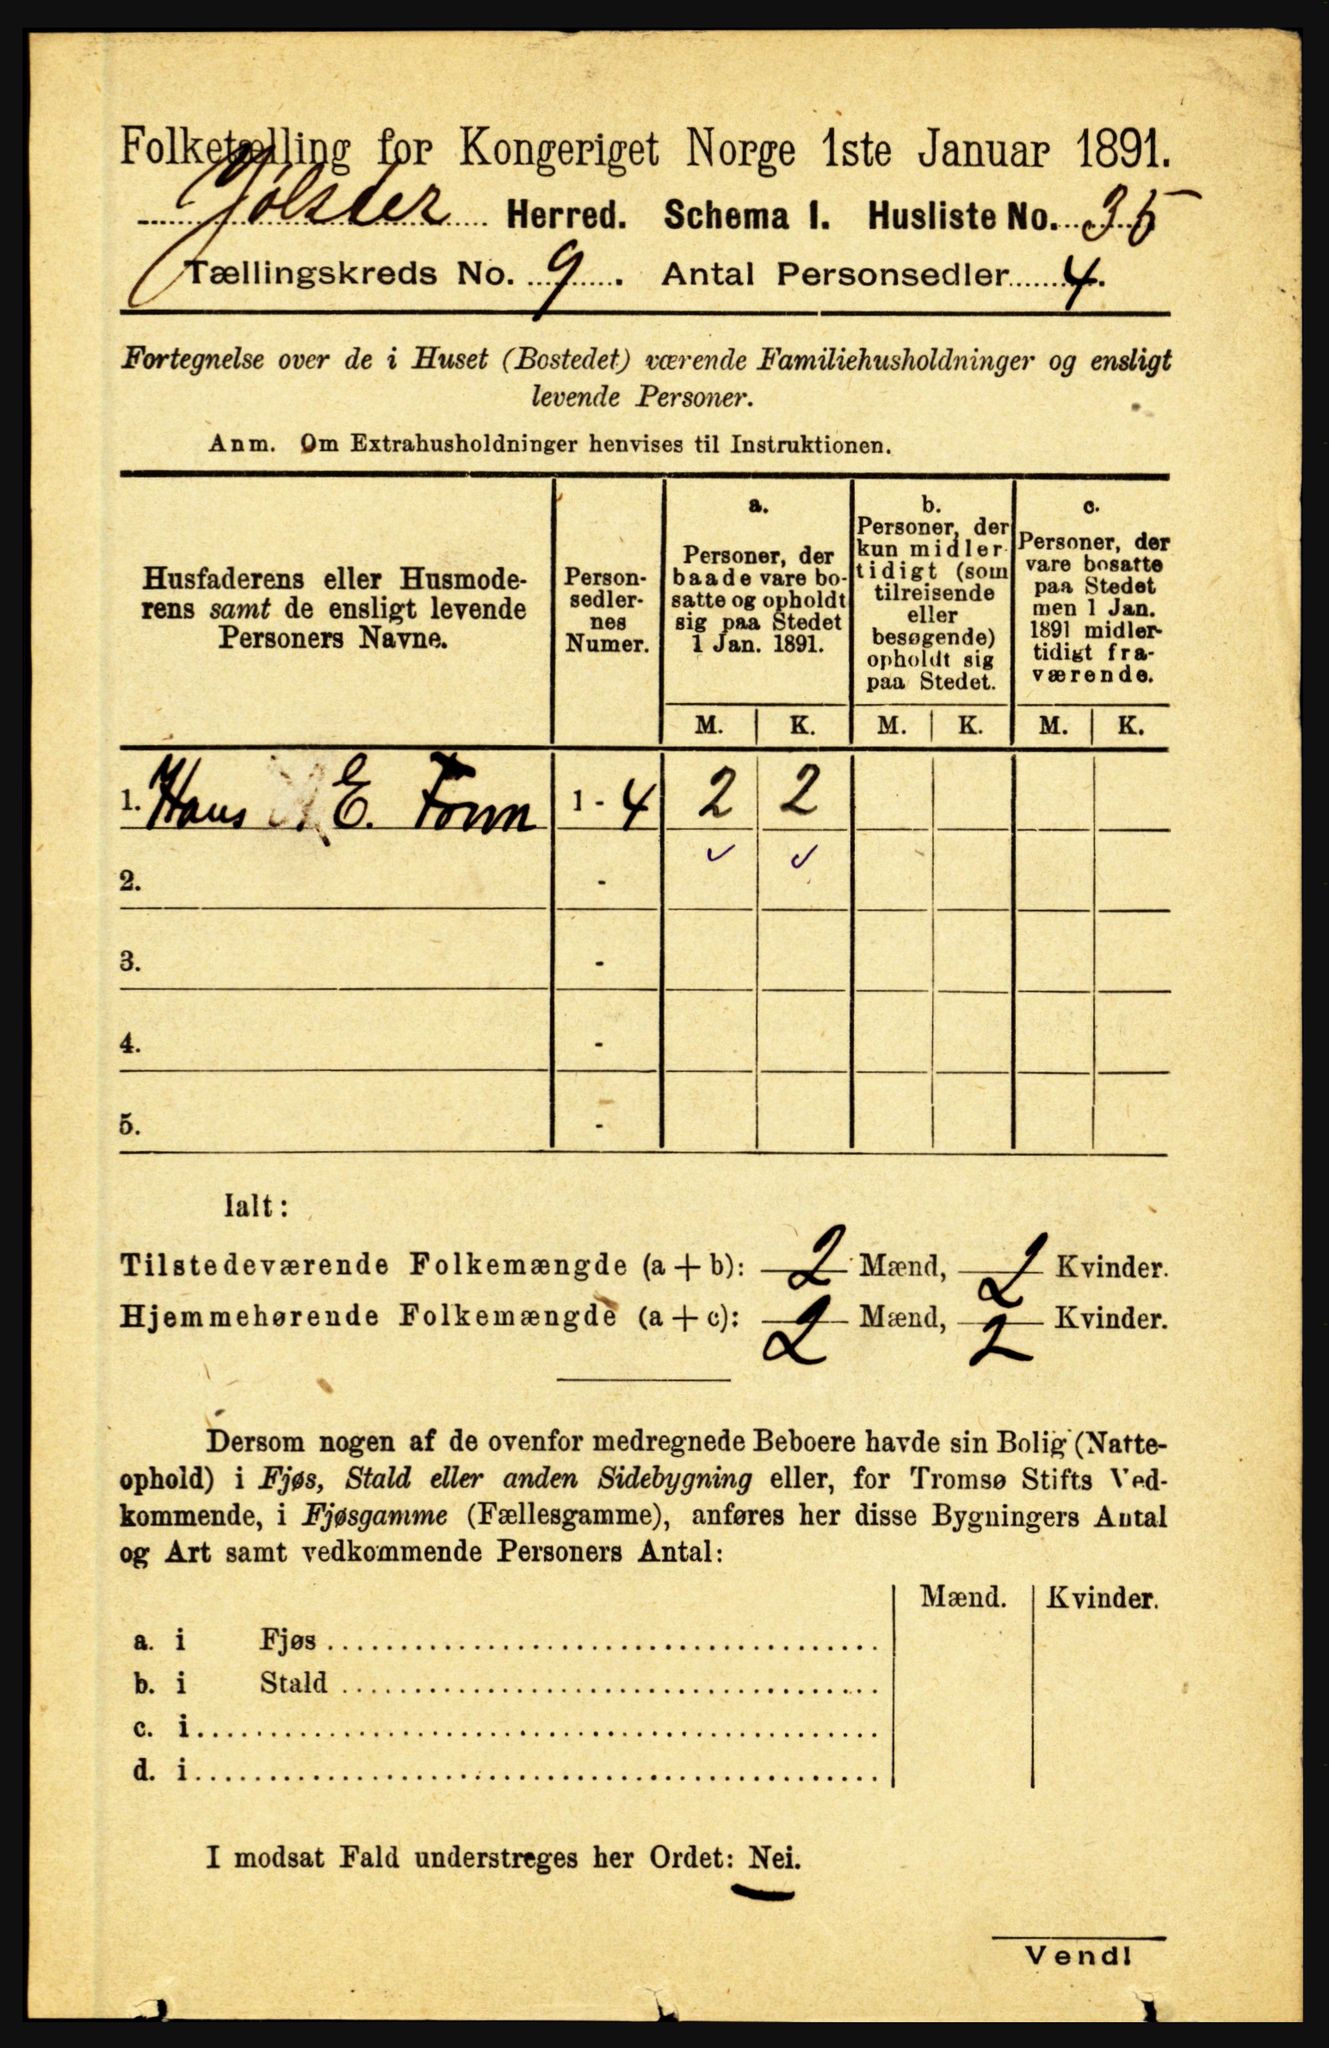 Folketælling for Kongeriget Norge 1ste Januar 1891.
Jølster Herred. Schema I. Husliste No. 35
Tællingskreds No. 9. Antal Personsedler 4.
Fortegnelse over de i Huset (Bostedet) værende Familiehusholdninger og ensligt
levende Personer.
Anm. Om Extrahusholdninger henvises til Instruktionen.
Husfaderens eller Husmode-
rens samt de ensligt levende
Personers Navne.
Person-
sedler-
nes
Numer.
a.
Personer, der
baade vare bo-
satte og opholdt
sig paa Stedet
1 Jan. 1891.
b.
Personer, der
kun midler-
tidigt (som
tilreisende
eller
besøgende)
opholdt sig
paa Stedet.
c.
Personer, der
vare bosatte
paa Stedet
men 1 Jan.
1891 midler-
tidigt fra-
værende.
M. K. M. K. M. K.
1. Hans E. Fonn 1 - 4 2 2
2. -
3. -
4. -
5. -
Ialt:
Tilstedeværende Folkemængde (a + b): 2 Mænd, 2 Kvinder.
Hjemmehørende Folkemængde (a + c): 2 Mænd, 2 Kvinder.
Dersom nogen af de ovenfor medregnede Beboere havde sin Bolig (Natte-
ophold) i Fjøs, Stald eller anden Sidebygning eller, for Tromsø Stifts Ved-
kommende, i Fjøsgamme (Fællesgamme), anføres her disse Bygningers Antal
og Art samt vedkommende Personers Antal:
Mænd. Kvinder.
a. i Fjøs
b. i Stald
c. i
d. i
I modsat Fald understreges her Ordet: Nei.
Vend!